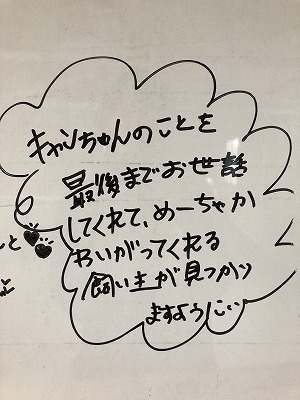 キャンちゃんのことを
最後までお世話
してくれて、めーちゃか
わいがってくれる
飼い主が見つかり
ますように…
と